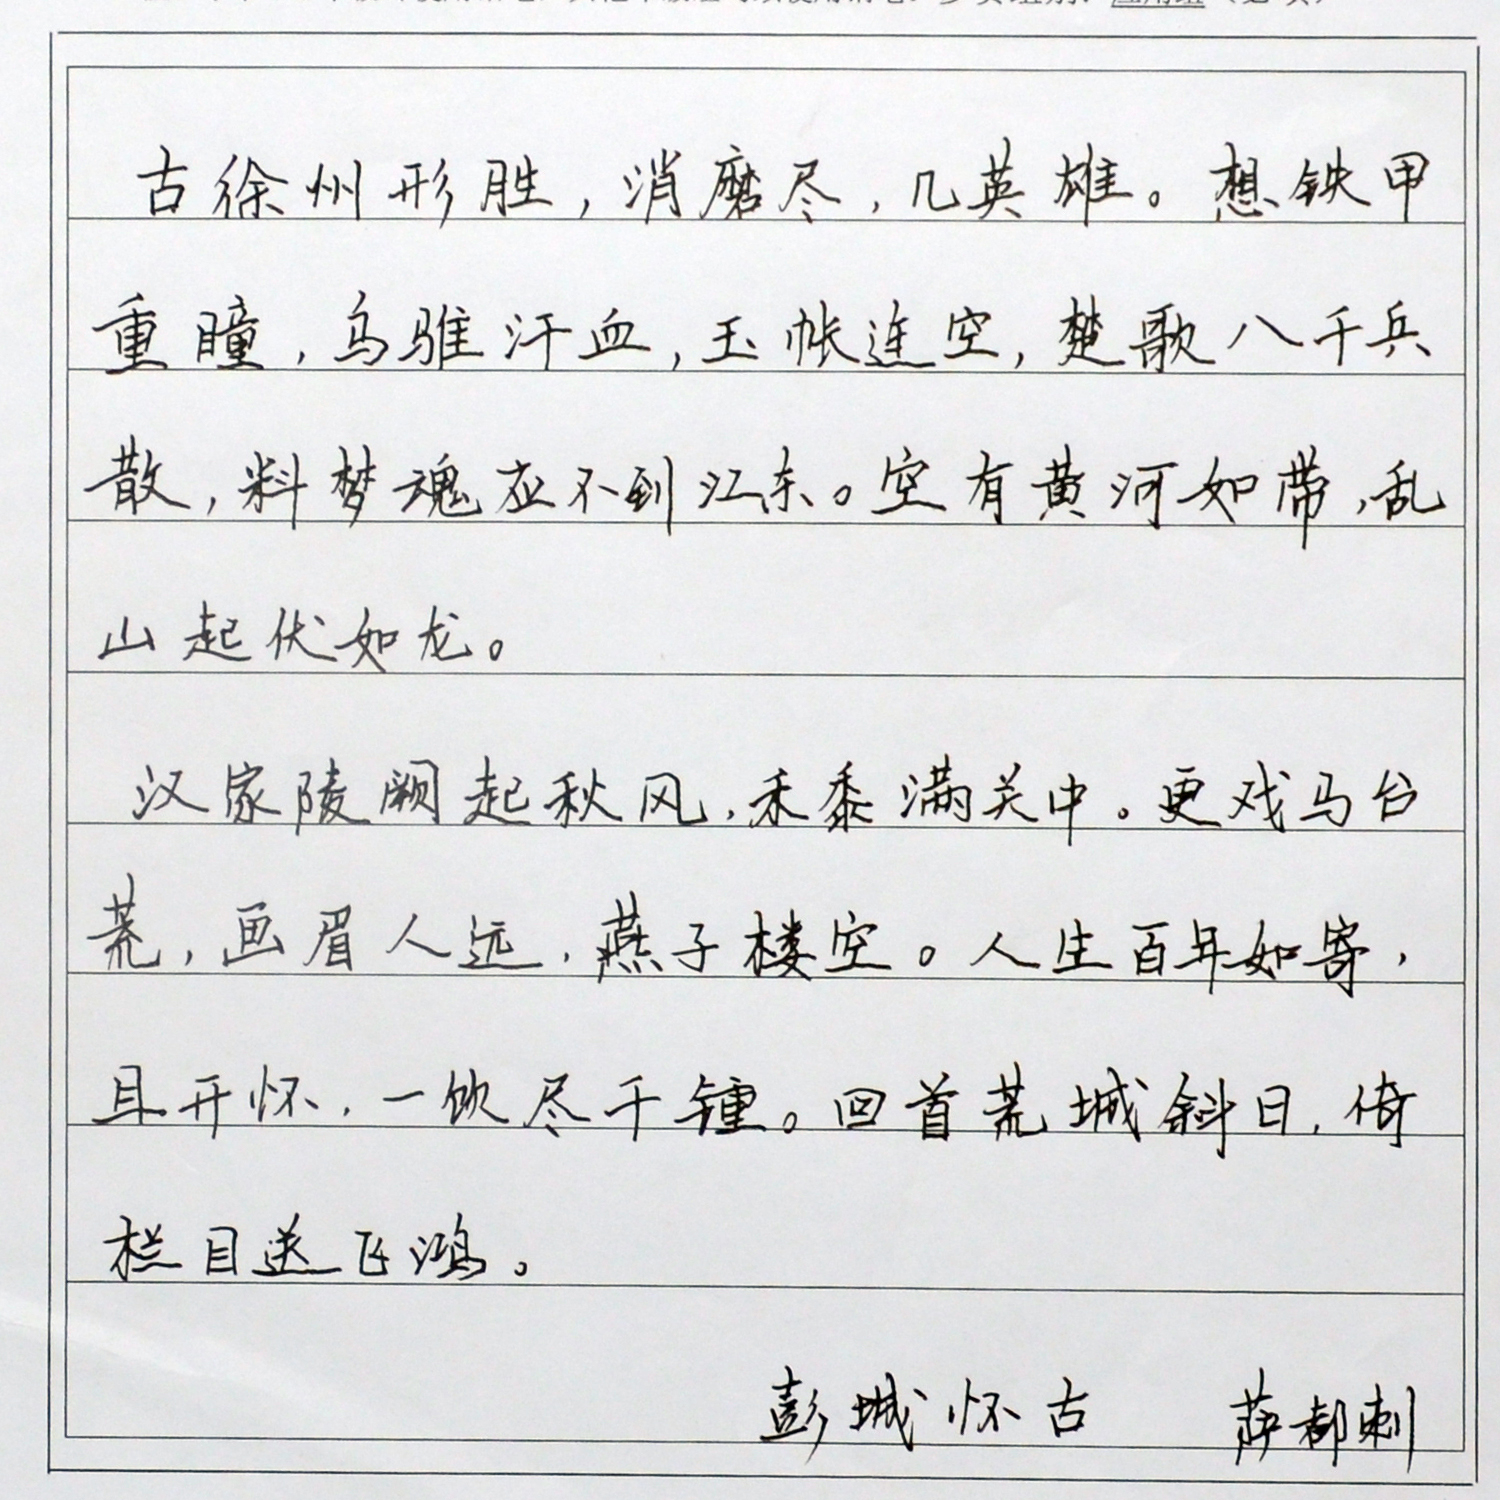 古徐州形胜,消磨尽,几英雄。想铁甲
重瞳,乌骓汗血,玉帐连空,楚歌八千兵
散,料梦魂应不到江东。空有黄河如带,乱
山起伏如龙。
汉家陵阙起秋风,禾黍满关中。更戏马台
荒,画眉人远,燕子楼空。人生百年如寄,
且开怀,一饮尽千锺。回首荒城斜日,倚
栏目送飞鸿。
彭城怀古 萨都剌